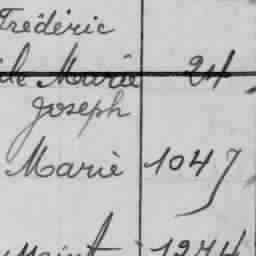 Frédéric
de Marie 24
Joseph
Marie 1047
1244